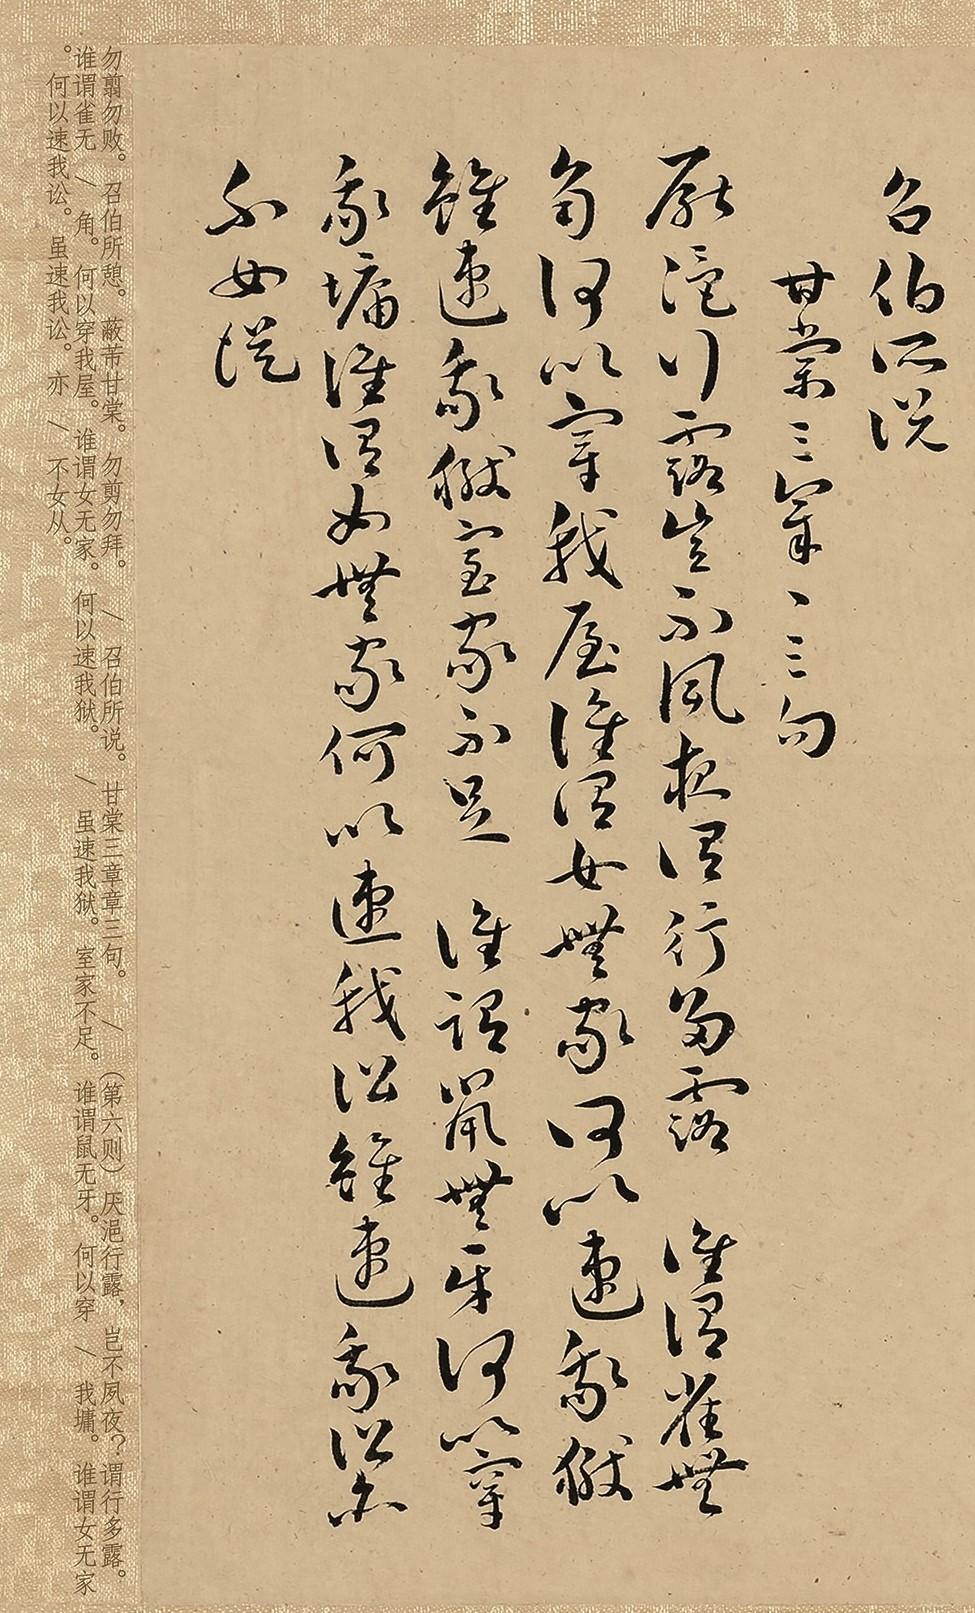 召伯所说
甘棠三章〻三句
厭浥行露豈不夙夜謂行多露 誰謂雀無
角何以穿我屋誰謂女無家何以速我獄
雖速我獄室家不足 誰謂鼠無牙何以穿
我墉誰謂女無家何以速我訟雖速我訟亦
不女從
勿翦勿败。召伯所憩。蔽芾甘棠。勿剪勿拜。 / 召伯所说。甘棠三章章三句。 / （第六则）厌浥行露，岂不夙夜？谓行多露。
谁谓雀无 / 角。何以穿我屋。谁谓女无家。何以速我狱。 / 虽速我狱。室家不足。谁谓鼠无牙。何以穿 / 我墉。谁谓女无家
。何以速我讼。虽速我讼。亦 / 不女从。